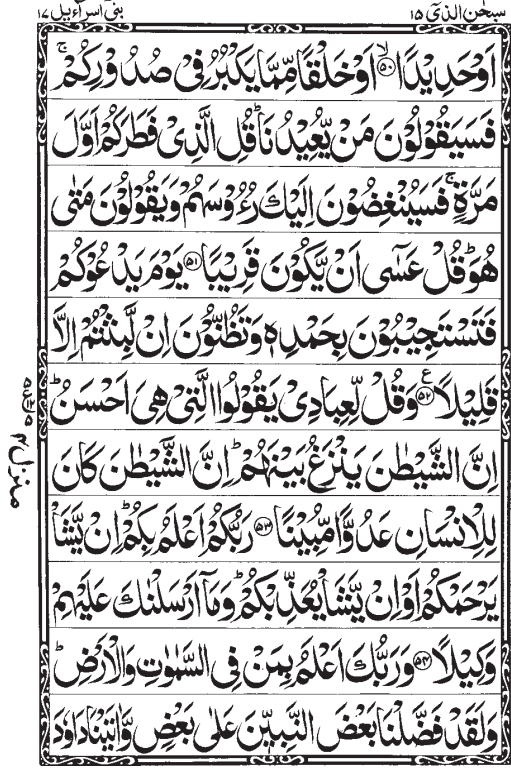 سبحٰن الذی ۱۵
بنی اسرآءیل ۱۷
اَوْ حَدِیْدًا ۙ﴿۵۰﴾ اَوْ خَلْقًا مِّمَّا یَكْبُرُ فِیْ صُدُوْرِكُمْ ۚ
فَسَیَقُوْلُوْنَ مَنْ یُّعِیْدُنَا ؕ قُلِ الَّذِیْ فَطَرَكُمْ اَوَّلَ
مَرَّةٍ ۚ فَسَیُنْغِضُوْنَ اِلَیْكَ رُءُوْسَهُمْ وَ یَقُوْلُوْنَ مَتٰی
هُوَ ؕ قُلْ عَسٰۤی اَنْ یَّكُوْنَ قَرِیْبًا ﴿۵۱﴾ یَوْمَ یَدْعُوْكُمْ
فَتَسْتَجِیْبُوْنَ بِحَمْدِهٖ وَ تَظُنُّوْنَ اِنْ لَّبِثْتُمْ اِلَّا
قَلِیْلًا ﴿۵۲﴾ ع وَ قُلْ لِّعِبَادِیْ یَقُوْلُوا الَّتِیْ هِیَ اَحْسَنُ ؕ
اِنَّ الشَّیْطٰنَ یَنْزَغُ بَیْنَهُمْ ؕ اِنَّ الشَّیْطٰنَ كَانَ
لِلْاِنْسَانِ عَدُوًّا مُّبِیْنًا ﴿۵۳﴾ رَبُّكُمْ اَعْلَمُ بِكُمْ ؕ اِنْ یَّشَاْ
یَرْحَمْكُمْ اَوْ اِنْ یَّشَاْ یُعَذِّبْكُمْ ؕ وَ مَاۤ اَرْسَلْنٰكَ عَلَیْهِمْ
وَكِیْلًا ﴿۵۴﴾ وَ رَبُّكَ اَعْلَمُ بِمَنْ فِی السَّمٰوٰتِ وَ الْاَرْضِ ؕ
وَ لَقَدْ فَضَّلْنَا بَعْضَ النَّبِیّٖنَ عَلٰی بَعْضٍ وَّ اٰتَیْنَا دَاوٗدَ
منزل ۴